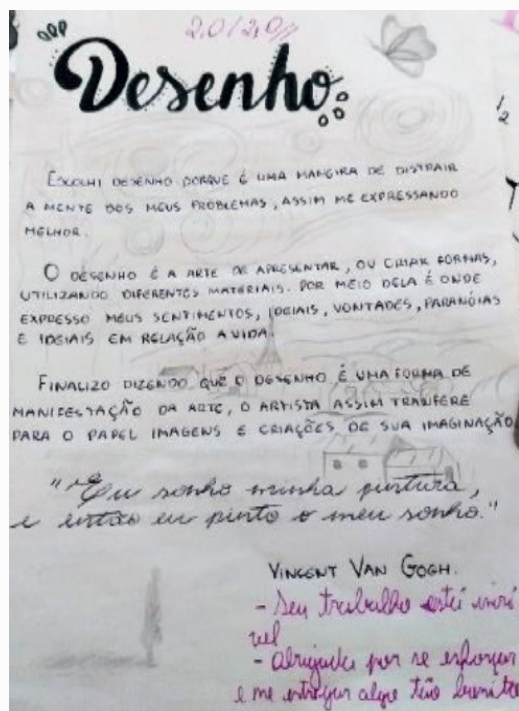 2,0/2,0
Desenho
1/2
ESCOLHI DESENHO PORQUE É UMA MANEIRA DE DISTRAIR
A MENTE DOS MEUS PROBLEMAS, ASSIM ME EXPRESSANDO
MELHOR.
O DESENHO É A ARTE DE APRESENTAR, OU CRIAR FORMAS,
UTILIZANDO DIFERENTES MATERIAIS. POR MEIO DELA É ONDE
EXPRESSO MEUS SENTIMENTOS, IDEIAIS, VONTADES, PARANÓIAS
E IDEIAIS EM RELAÇÃO A VIDA.
FINALIZO DIZENDO QUE O DESENHO É UMA FORMA DE
MANIFESTAÇÃO DA ARTE, O ARTISTA ASSIM TRANFERE
PARA O PAPEL IMAGENS E CRIAÇÕES DE SUA IMAGINAÇÃO
"Eu sonho minha pintura,
e então eu pinto o meu sonho."
VINCENT VAN GOGH.
- Seu trabalho está incrí
vel
- Obrigada por se esforçar
e me entregar algo tão bonito